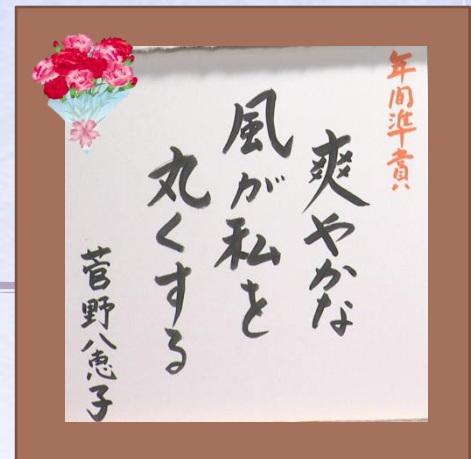 年間準賞
爽やかな
風が私を
丸くする
菅野八恵子